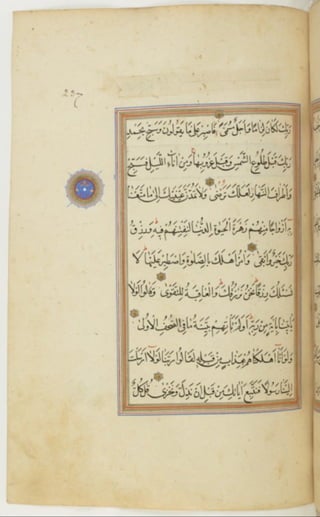 237
رَبِّكَ لَكَانَ لِزَامًا وَأَجَلٌ مُسَمًّى فَاصْبِرْ عَلَى مَا يَقُولُونَ وَسَبِّحْ بِحَمْدِ
رَبِّكَ قَبْلَ طُلُوعِ الشَّمْسِ وَقَبْلَ غُرُوبِهَا وَمِنْ آنَاءِ اللَّيْلِ فَسَبِّحْ
وَأَطْرَافَ النَّهَارِ لَعَلَّكَ تَرْضَى وَلَا تَمُدَّنَّ عَيْنَيْكَ إِلَى مَا مَتَّعْنَا
بِهِ أَزْوَاجًا مِنْهُمْ زَهْرَةَ الْحَيٰوةِ الدُّنْيَا لِنَفْتِنَهُمْ فِيهِ وَرِزْقُ
رَبِّكَ خَيْرٌ وَأَبْقَى وَأْمُرْ أَهْلَكَ بِالصَّلٰوةِ وَاصْطَبِرْ عَلَيْهَا لَا
نَسْئَلُكَ رِزْقًا نَحْنُ نَرْزُقُكَ وَالْعَاقِبَةُ لِلتَّقْوَى وَقَالُوا لَوْلَا
يَأْتِينَا بِآيَةٍ مِنْ رَبِّهِ أَوَلَمْ تَأْتِهِمْ بَيِّنَةُ مَا فِي الصُّحُفِ الْأُولَى
وَلَوْ أَنَّا أَهْلَكْنَاهُمْ بِعَذَابٍ مِنْ قَبْلِهِ لَقَالُوا رَبَّنَا لَوْلَا أَرْسَلْتَ
إِلَيْنَا رَسُولًا فَنَتَّبِعَ آيَاتِكَ مِنْ قَبْلِ أَنْ نَذِلَّ وَنَخْزَى قُلْ كُلٌّ